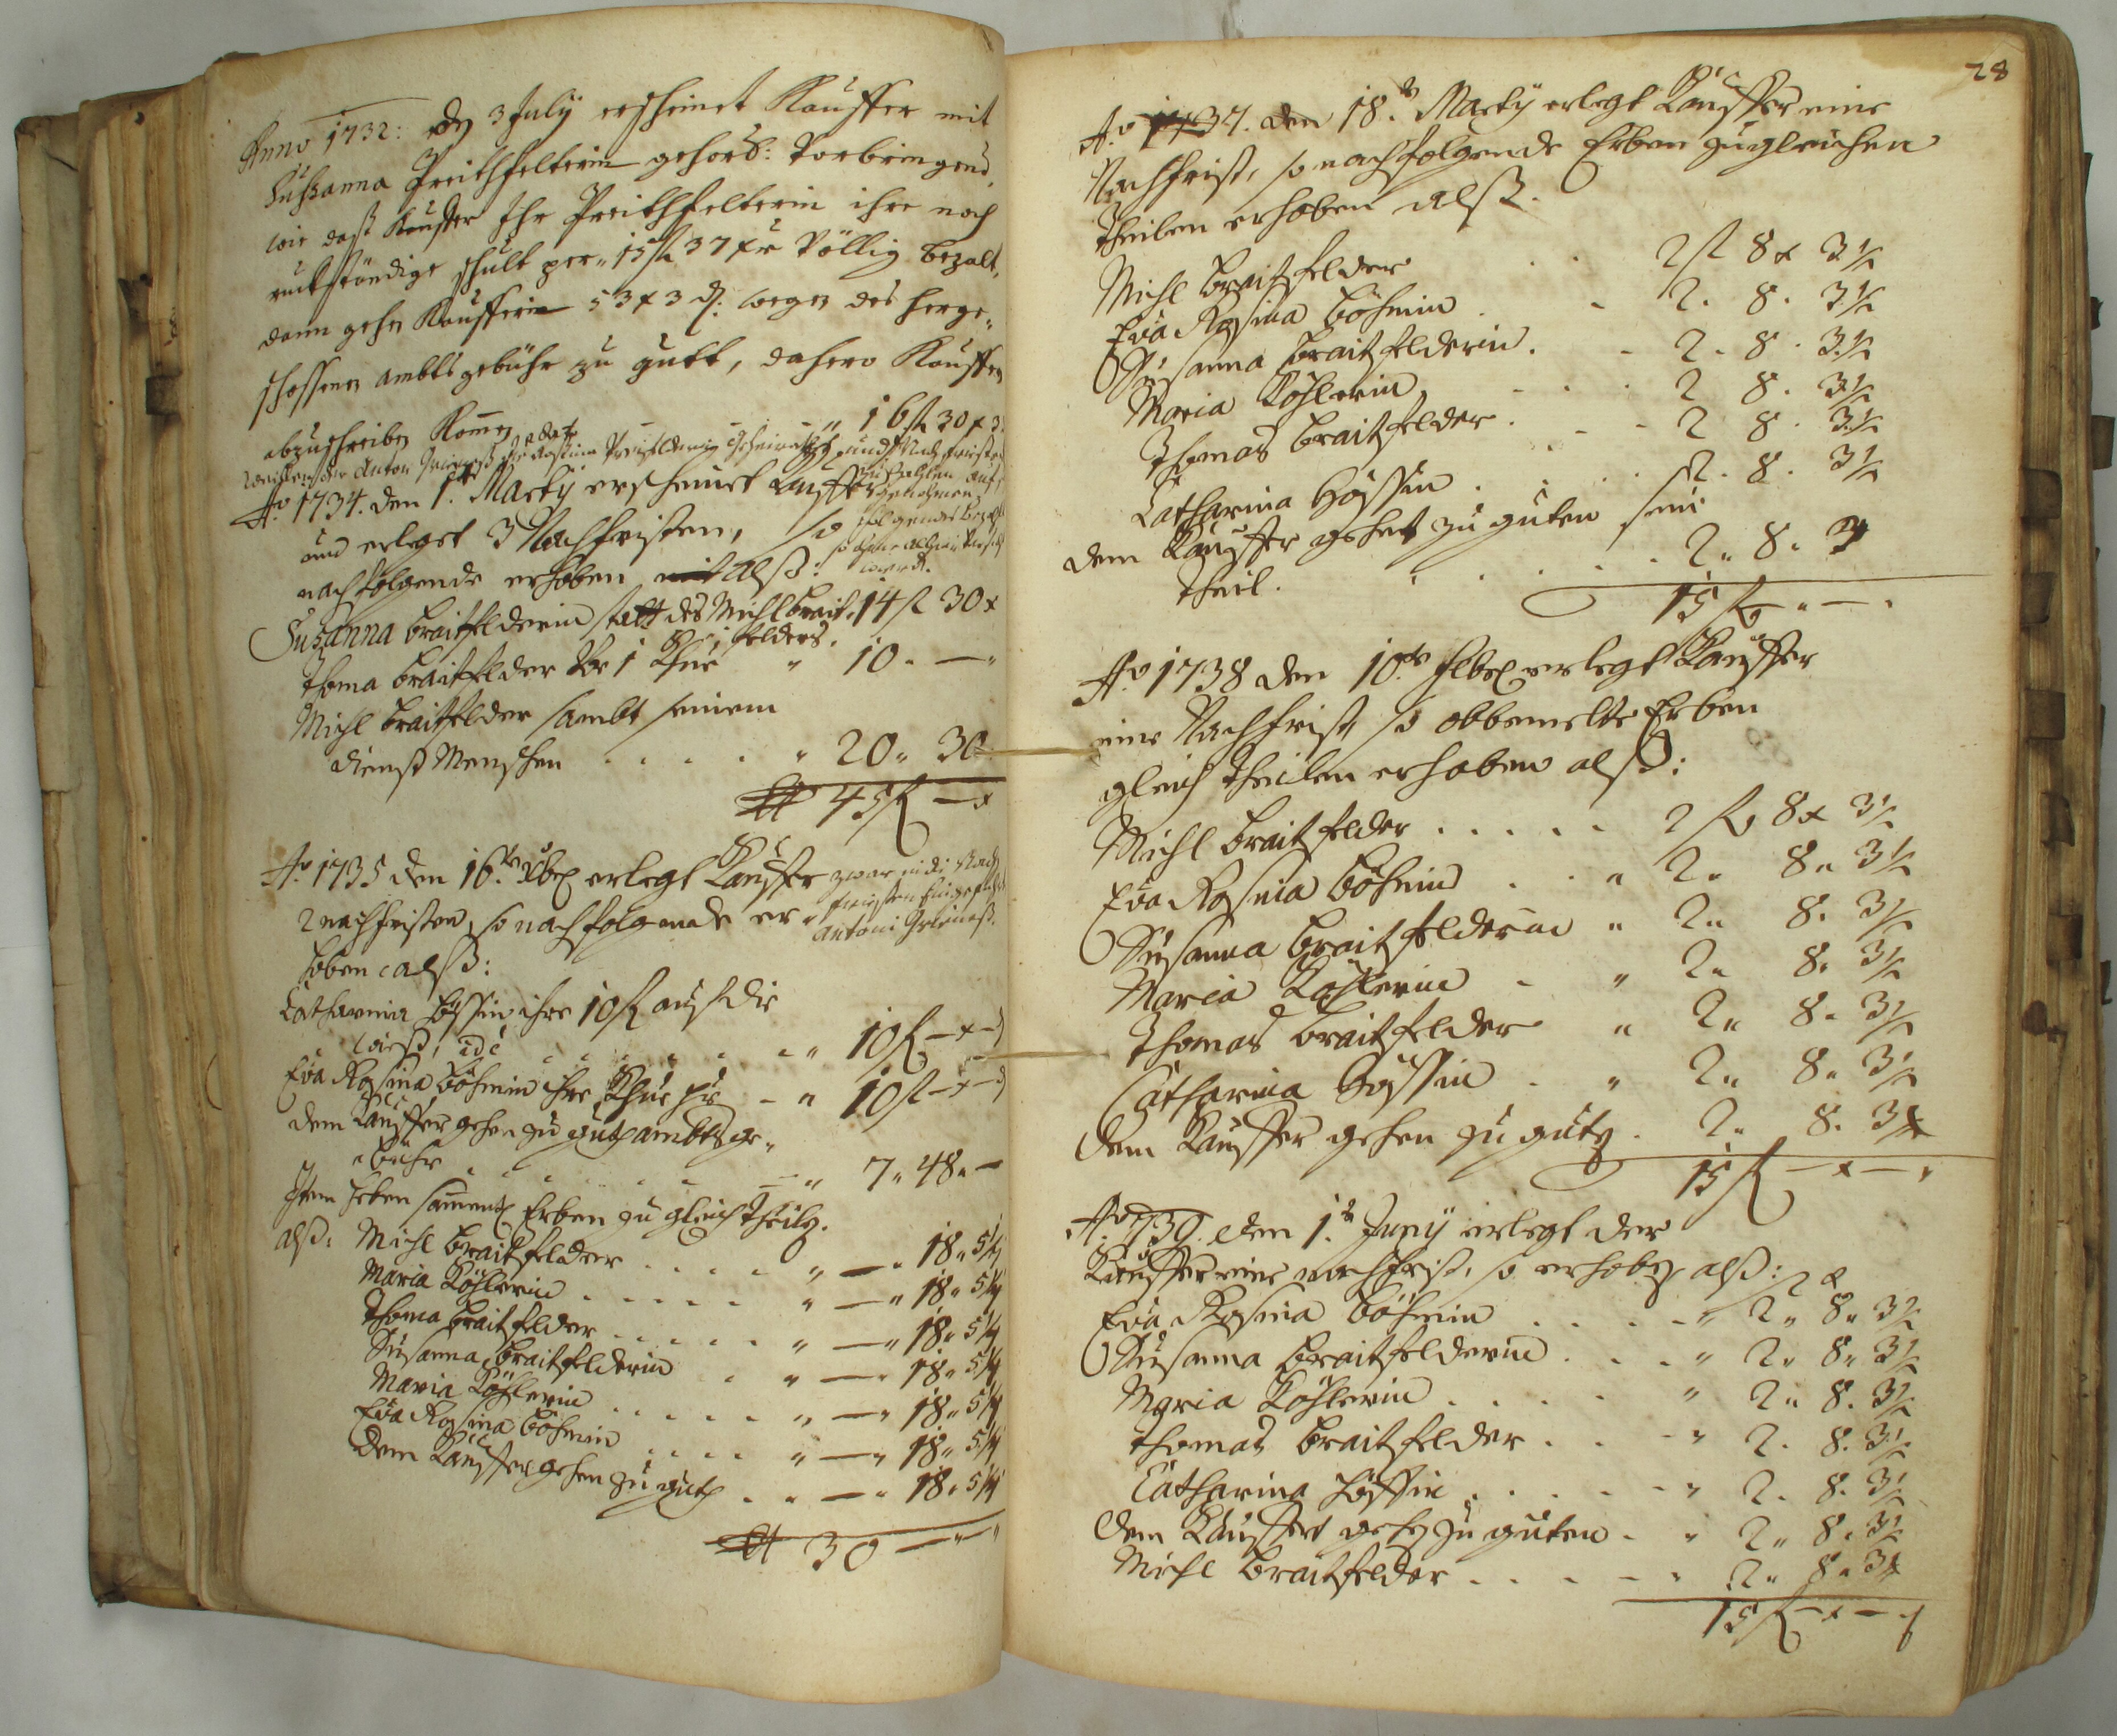 Anno 1732: dn 3 July erscheinet Kauffer mit
Sußanna Preithfelterin gehors: vorbringend,
wie daß Kauffer Ihr Preithfelterin ihre noch
rückständige schult per 15 fl 37 xr völlig bezalt,
dann gehn Kaufferin 53 x 3 d. wegen des herge„
schossenen ambts gebühr zu gutt, dahero Kauffern
abzuschreiben komen „ 16 fl 30 x 3
Ao 1734. den 1t Marty erscheinet Kauffer
und erleget 3 Nachfristen, so
nachfolgende erhoben alß:
Susanna Braitfelderin statt des Michl Brait„ 14 fl 30 x
felders.
Thoma Braitfelder vor 1 Khue „ 10 . —
Michl Braitfelder sambt seinem
dienst Menschen . . . . „ 20 „ 30
45 fl — x
Ao 1735 den 16t Xbr erlegt Kauffer zwar in die Nach
fristen
Antoni
2 nachfristen, so nachfolgende er„
hoben alß:
Catharina Hössin ihre 10 fl auf die
wieß, id e . . . „ 10 fl — x — d
Eva Rosina Böhmin ihre Khue pr — „ 10 fl — x — d
dem Kauffer gehen zu guth ambts ge„
bühr . . . . „ 7 „ 48 „ —
Item heben sament Erben zu gleich theiln.
alß: Michl Braitfelder . . . . „ — „ 18 „ 5 1/4
Maria Köhlerin . . . . „ — „ 18 „ 5 1/4
Thoma Braitfelder . . . . „ — „ 18 „ 5 1/4
Susanna Braitfelderin . „ — „ 18 „ 5 1/4
Maria Köhlerin . . . . „ — „ 18 „ 5 1/4
Eva Rosina Böhmin . . . . „ — „ 18 „ 5 1/4
Dem Kauffer gehen zu guth . . „ — „ 18 „ 5 1/4
30 — „ — „
28
Ao 1737. den 18t Marty erlegt Kauffer eine
Nachfrist, so nachfolgende Erben zugleichen
Theilen erhoben alß.
Michl Braitfelder . . 2 fl 8 x 3 1/2
Eva Rosina Böhmin . . 2 . 8 . 3 1/2
Susanna Braitfelderin . . 2 . 8 . 3 1/2
Maria Köhlerin . . . 2 8 . 3 1/2
Thomas Braitfelder . . . 2 8 . 3 1/2
Catharina Hössin . . . 2 . 8 . 3 1/2
dem Kauffer gehet zu guten sein
Theil. . . . . . 2 „ 8 „ 3
15 fl — „ — .
Ao 1738 den 10t erlegt Kauffer
eine Nachfrist, so obbemelte Erben
gleich Theilen erhoben alß:
Michl Braitfelder . . . . . 2 fl 8 x 3 1/2
Eva Rosina Böhmin . . „ 2 „ 8 „ 3 1/2
Susanna Braitfelderin „ 2 „ 8 . 3 1/2
Maria Köhlerin . „ 2 „ 8 . 3 1/2
Thomas Braitfelder „ 2 „ 8 . 3 1/2
Catharina Hössin . „ 2 „ 8 „ 3 1/2
dem Kauffer gehen zu gutn . 2 „ 8 . 3
15 fl — x — „
Ao 1739. den 1t Juny erlegt der
Kauffer eine nachfrist, so erhobn alß:
Eva Rosina Böhmin . . . . „ 2 „ 8 „ 3 1/2
Susanna Braitfelderin . . . „ 2 „ 8 „ 3 1/2
Maria Köhlerin . . . . „ 2 „ 8 . 3 1/2
Thomas Braitfelder . . . „ 2 . 8 . 3 1/2
Catharina Hössin . . . . „ 2 . 8 . 3 1/2
dem Kauffer gehn zu guten . „ 2 „ 8 . 3 1/2
Michl Braitfelder . . . . „ 2 „ 8 „ 3
15 fl — x — d